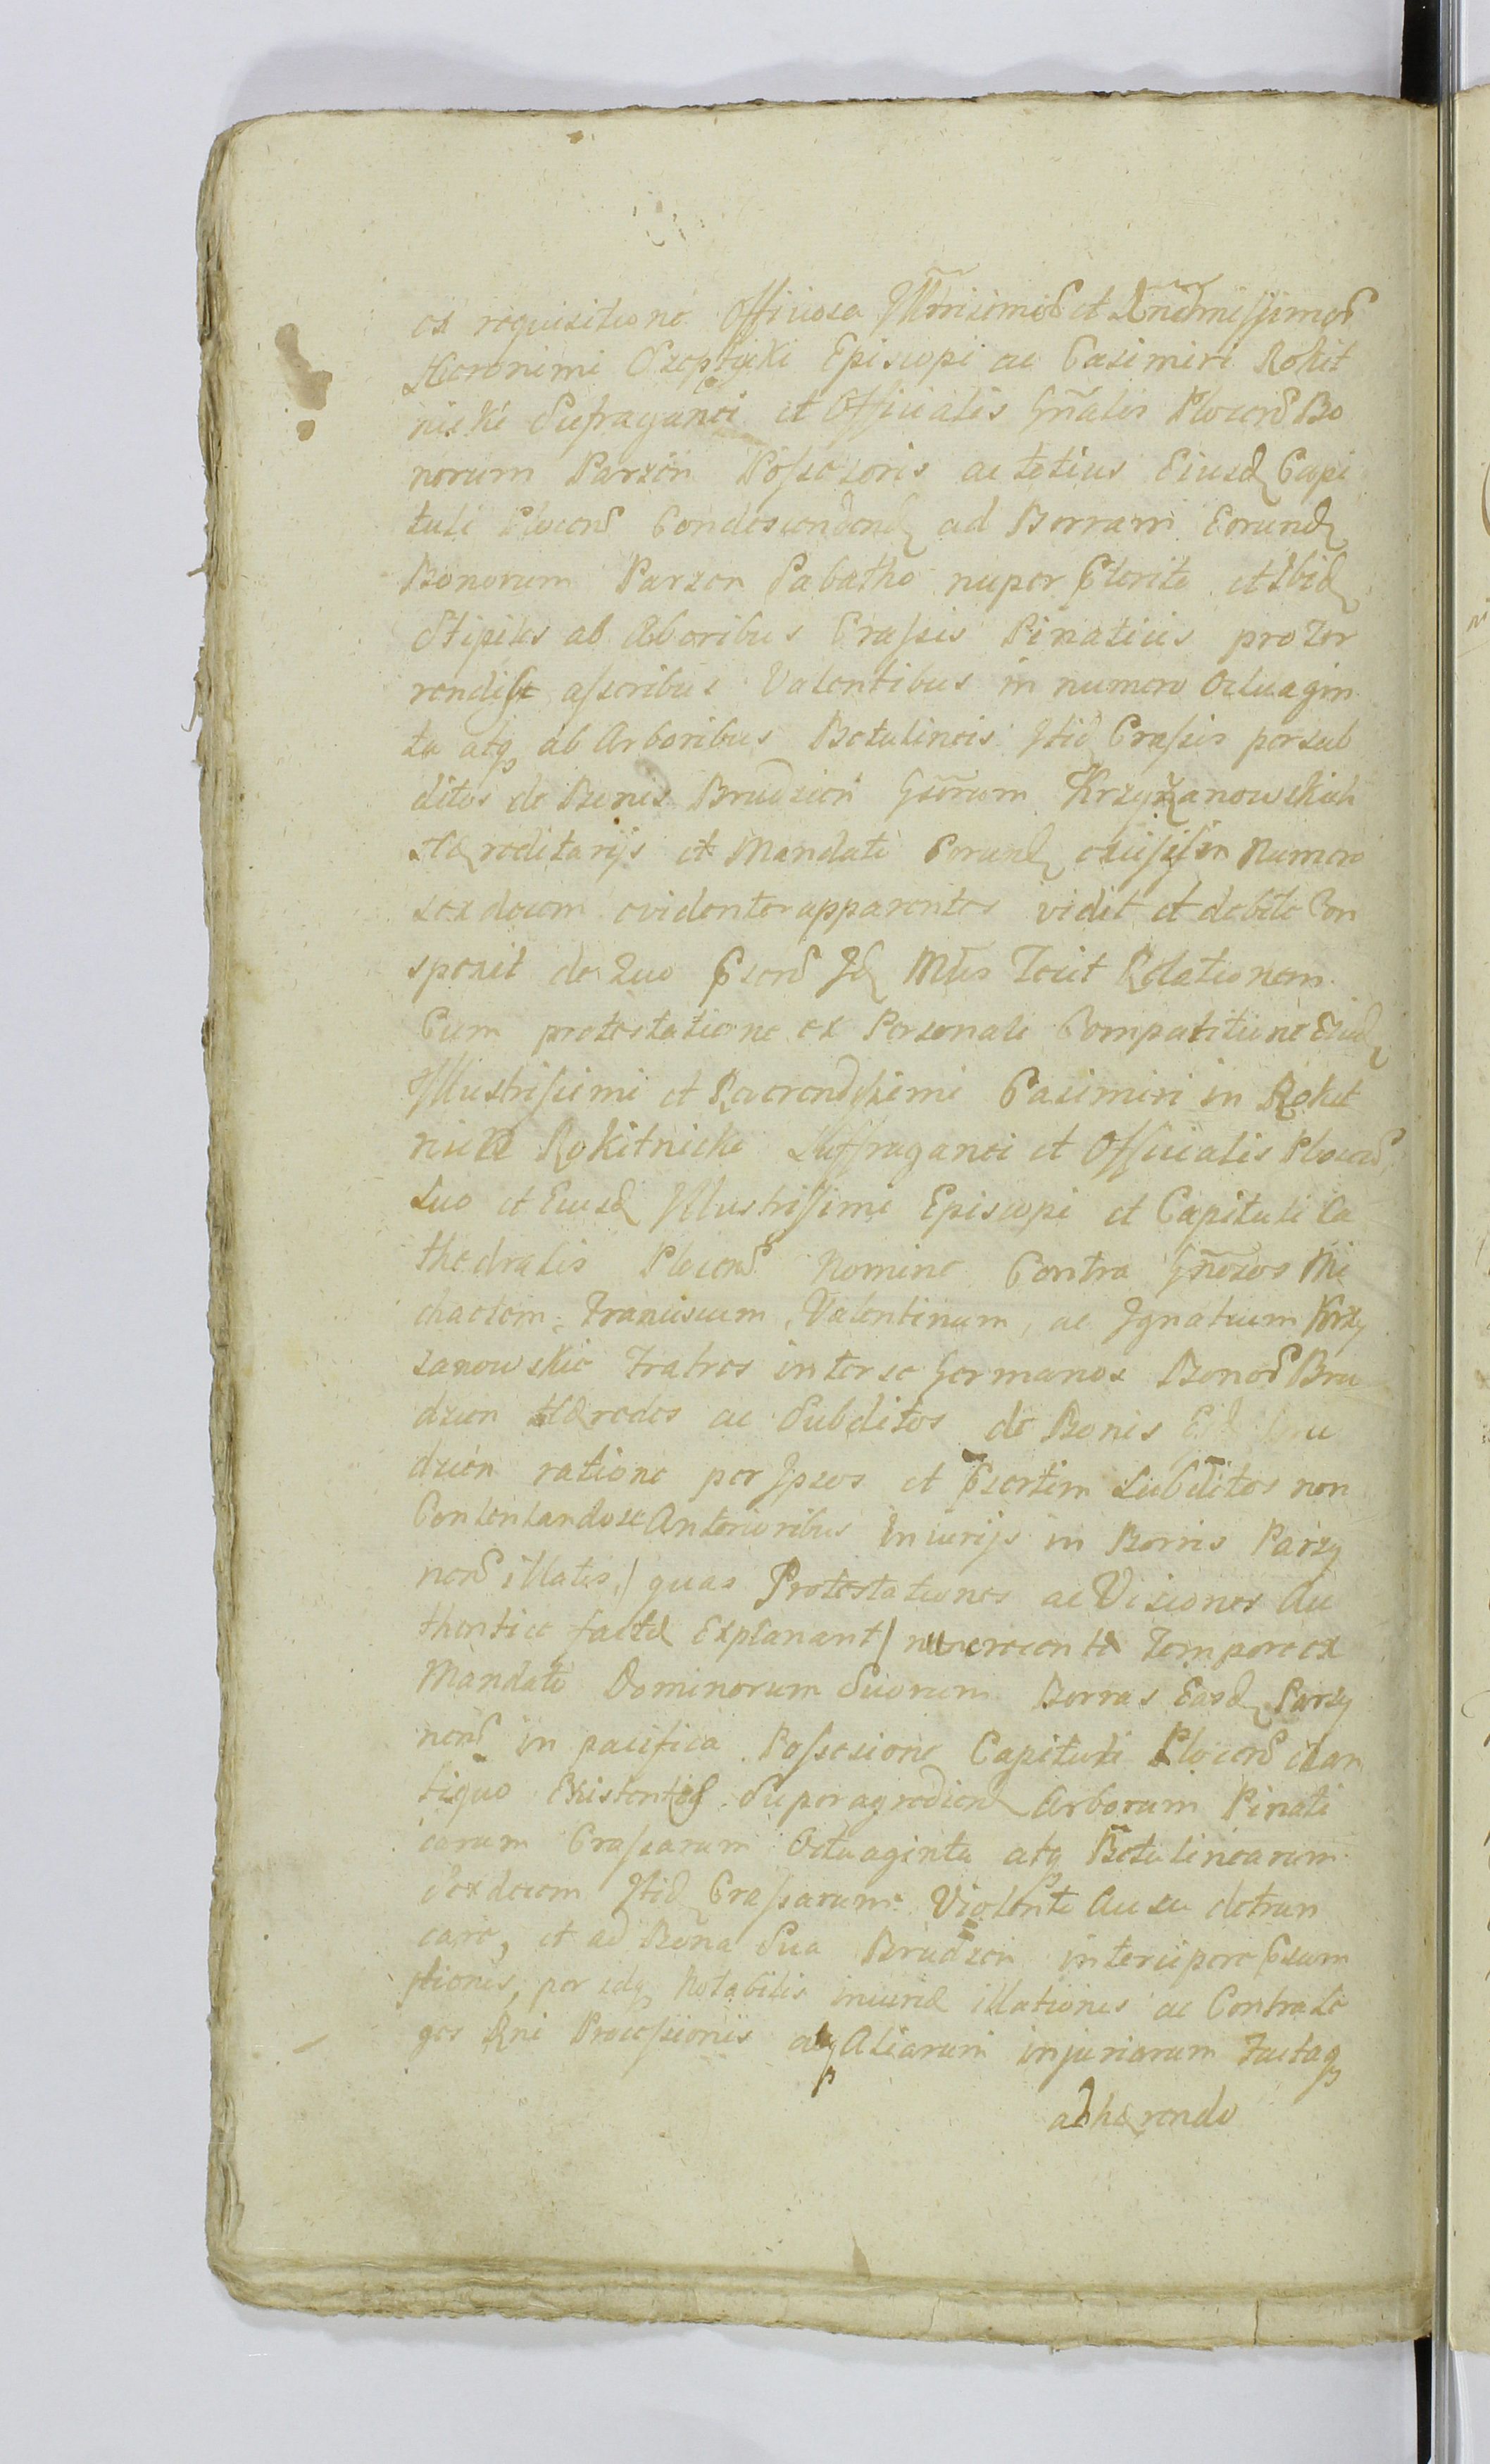 ex requisitione Officiosa Illtrisimor̃ et Rndmissimor̃
Hieronimi Szeptycki Episcopi ac Casimiri Rokit
nicki Sufraganei et Officialis Gñalis Plocen̄ Bo
norum Parzen Possesoris ac totius Eiusd Capi
tuli Plocen̄ Condescendend ad Borram Eorund
Bonorum Parzen Sabatho nuper pterito et Ibid
Stipites ab Arboribus Crassis Pinaticis pro
asseribus Valentibus in numero Octuagin
ta atq ab Arboribus Betulineis Itid Crassis per sub
ditos de Bonis Brudzen Gsorum Krzyżanowskich
Hæreditarijs et Mandato Eorund excissis in Numero
sexdecem evidenter apparentes vidit et debite Con
spexit de Quo psens Id Mtris fecit Relationem
Cum protestatione ex Personali Compatitione Eiusd
Illustrissimi et Reverendissimi Casimiri in Rokit
nica Rokitnicki Suffraganei et Officialis Plocen̄
Suo et Eiusd Illustrissimi Episcopi et Capituli Ca
thedralis Plocen̄ Nomine Contra Gñosos Mi
chaelem, Franciscum, Valentinum, ac Ignatium Krzy
zanowskie Fratres inter se Germanos Bonor̃ Bru
dzen Hæredes ac Subditos de Bonis Eisd Bru
dzen ratione per Ipsos et psertim Subditos non
Contentando se Anterioribus Iniurijs in Borris Parzy
nen̄ illatis,/ quas Protestationes ac Visiones Au
thentice factæ Explanant / nunc recente Tempore ex
Mandato Dominorum Suorum Borras Easd Parzy
nen̄ in pacifica Possesione Capituli Plocen̄ ab an
tiquo Existentes Superagredien Arborum Pinati
carum Crassarum Octuaginta atq Betulinearum
Sexdecem Itid Crassarum Violento Ausu detrun
care, et ad Bona Sua Brudzen intercipere psum
ptionis, per idq Notabilis iniuriæ illationis ac Contra Le
ges Rni Processionis atq Aliarum injuriarum
adhærendo